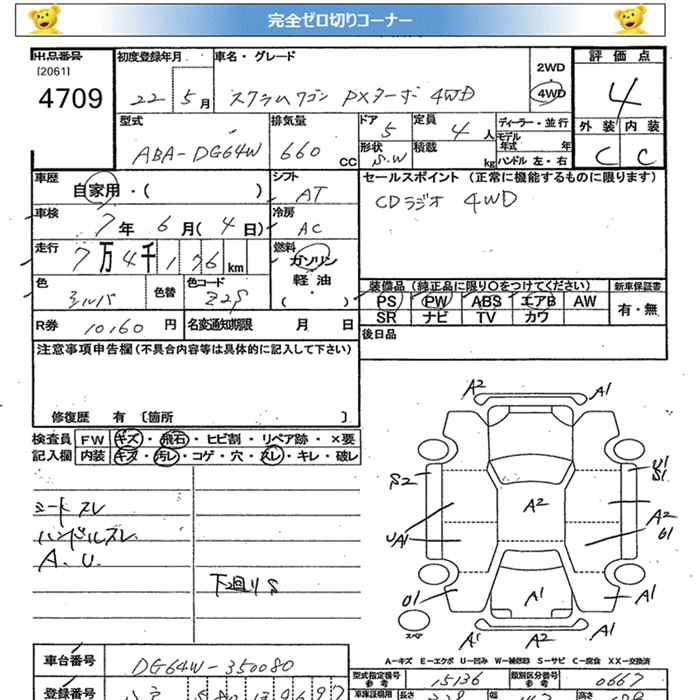 完全ゼロ切りコーナー
出品番号 初度登録年月 車名・グレード 2WD 評価点
[2061]
4709 22 5月 スクラムワゴン PXターボ 4WD 4WD 4
型式 排気量 ドア 定員 ディーラー・並行 外装 内装
ABA-DG64W 660 CC 5 4人 モデル年式 年
形状 S.W 積載 kg ハンドル 左・右 C C
車歴 シフト セールスポイント (正常に機能するものに限ります)
自家用・( ) AT CDラジオ 4WD
車検 冷房
7年 6月(4日) AC
走行 燃料
7万4千176km ガソリン
軽油
色 色替 色コード ( )
シルバ Z2S
装備品 (純正品に限り〇をつけてください) 新車保証書
PS PW ABS エアB AW 有・無
SR ナビ TV カワ
R券 10160円 名変通知期限 月 日 後日品
注意事項申告欄(不具合内容等は具体的に記入して下さい)
修復歴 有 〔箇所 〕
検査員 FW キズ・飛石・ヒビ割・リペア跡・×要
記入欄 内装 キズ・汚レ・コゲ・穴・スレ・キレ・破レ
シートスレ
ハンドルスレ
A.U.
下廻りS
A2 A1
S2 U1
S1
A2 A2
UA1 B1
01 A1 A1
スペア A1 A2 A1
A-キズ E-エクボ U-凹み W-補修跡 S-サビ C-腐食 XX-交換済
車台番号 DG64W-350080
型式指定番号 参考 15136 類別区分番号 参考 0667
登録番号
車庫証明用 参考 長さ 幅 高さ